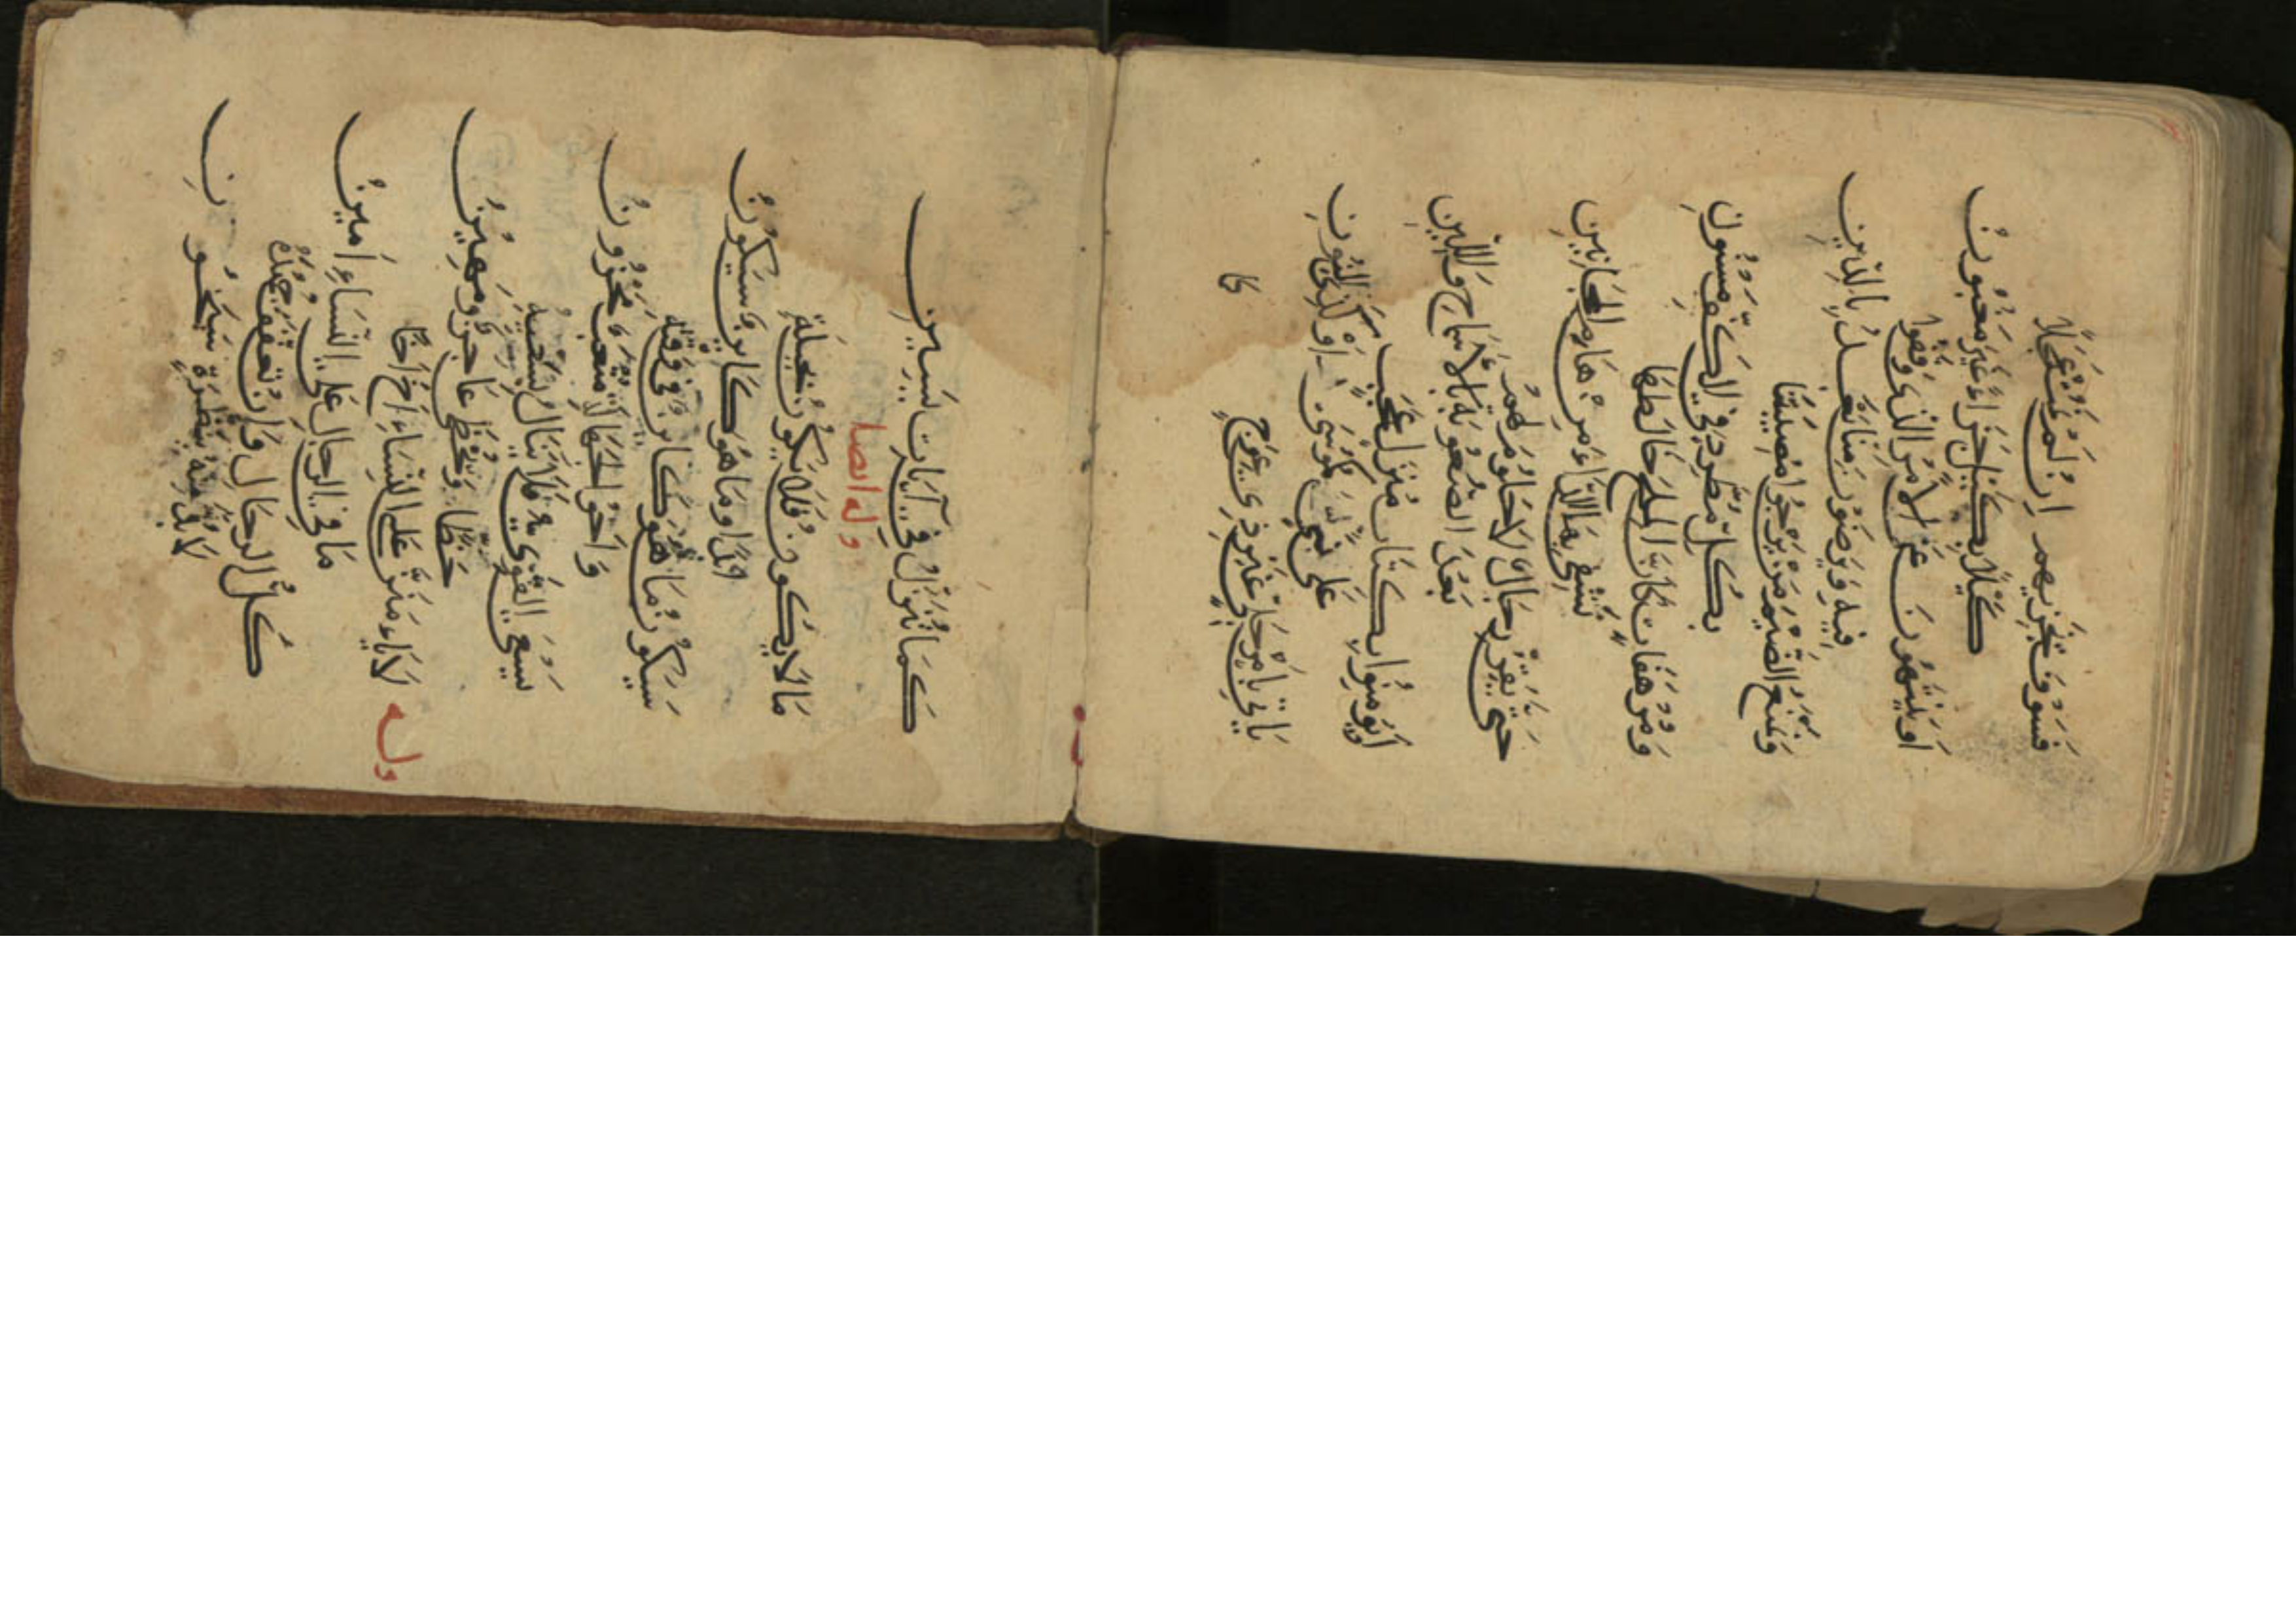 فسوف نجزيهم ان لم
كَيْلًا بكيل جزاءً غير مغبون
او ينتهون عن الامر الذي وقفوا
فيه ويرضون منا بعد بالدون
ونمنع الضيم من يرجو مضيمتنا
بكل مطرد في الكف مسنون
ومرهفات كان الملح خالطها
نشفي بها الداء من هام المجانين
حتى تقر رجال لا حلوم لهم
بعد الصعوبة بالاسماح واللين
او يؤمنوا بكتاب منزل عجب
على نبي كموسى او كذي النون
ياتي بامر جلي غير ذي عوج
كما
كما تنزل في آيات يسين
وله ايضا
ما لا يكون فلا يكون بحيلة
ابدا وما هو كاين سيكون
سيكون ما هو كاين في وقته
واخو الجهالة متعب محزون
يسعى القوي فلا ينال بسعيه
حظا ويحظى عاجز ومهين
وله
لا يامنن على النساء اخ اخا
ما في الرجال على النساء امين
كل الرجال وان تعفف جهده
لا بد بنظرة سيخون